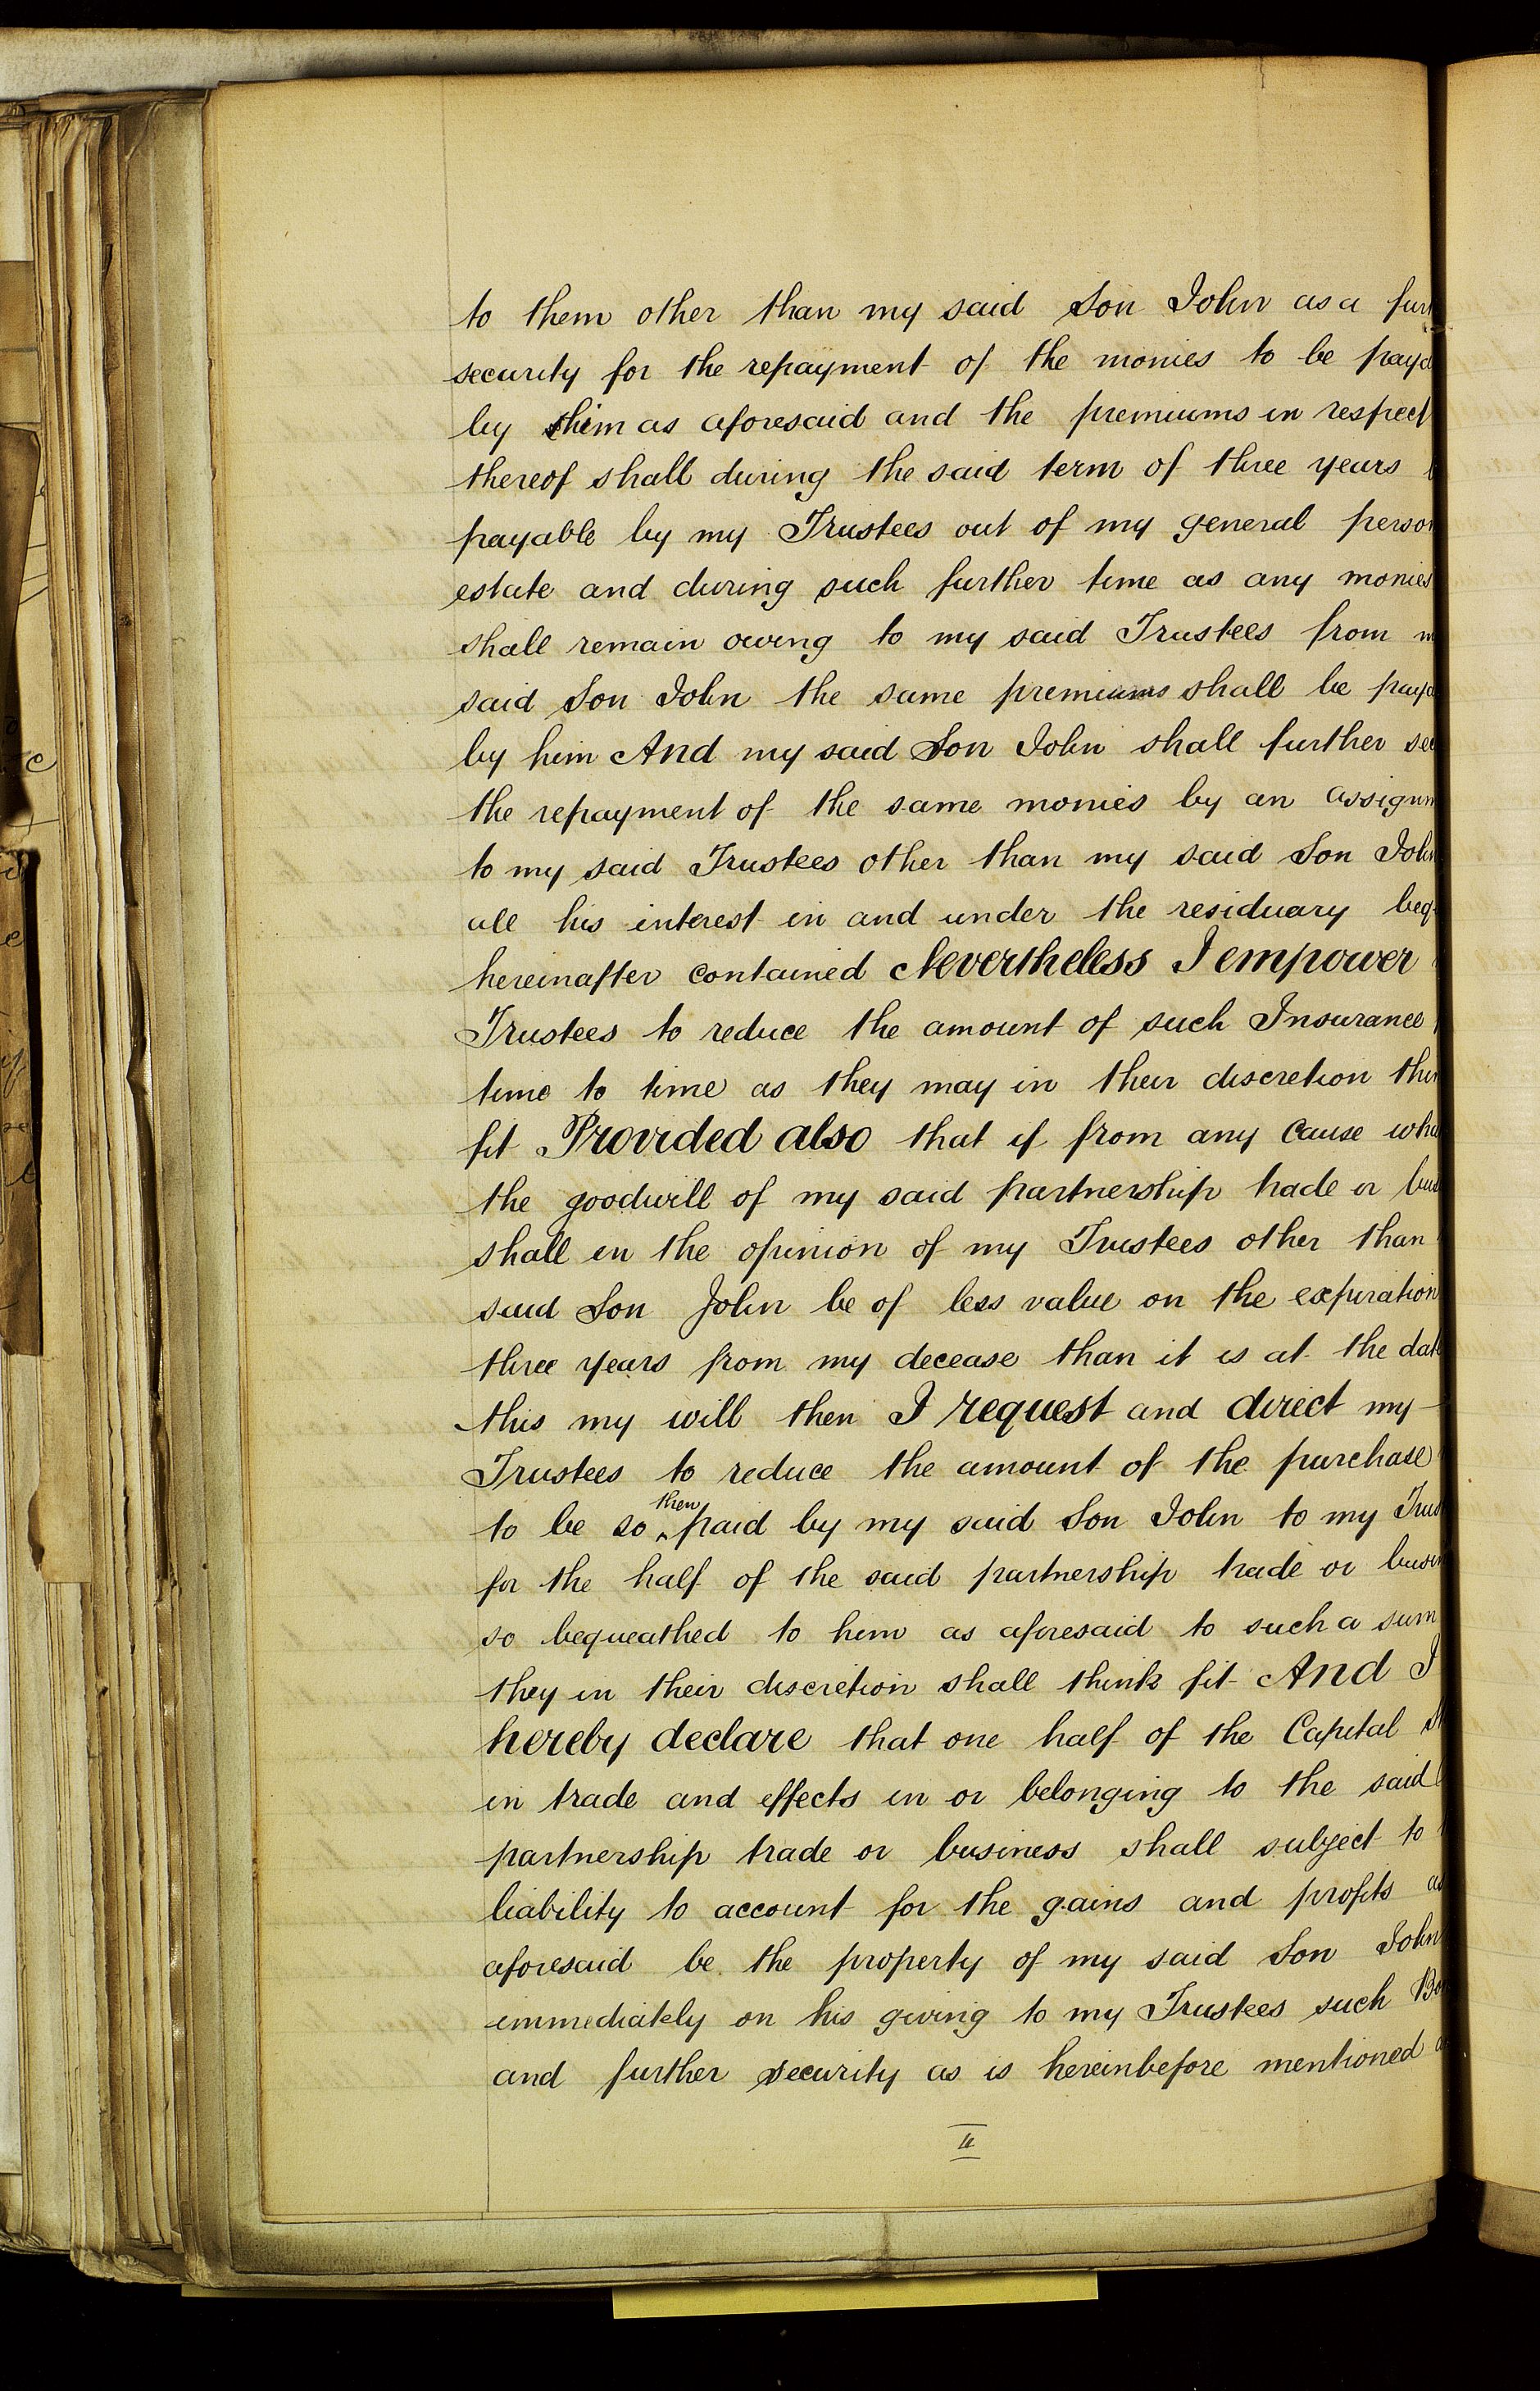 to them other than my said Son John as a fur
security for the repayment of the monies to be paya
by him as aforesaid and the premiums in respect
thereof shall during the said term of three years
payable by my Trustees out of my general person
estate and during such further time as any monies
shall remain owing to my said Trustees from m
said Son John the same premiums shall be paya
by him And my said Son John shall further sec
the repayment of the same monies by an assignm
to my said Trustees other than my said Son John
all his interest in and under the residuary beq
hereinafter contained Nevertheless I empower
Trustees to reduce the amount of such Insurance
time to time as they may in their discretion thin
fit Provided also that if from any cause wha
the goodwill of my said partnership trade or bus
shall in the opinion of my Trustees other than
said Son John be of less value on the expiration
three years from my decease than it is at the date
this my will then I request and direct my
Trustees to reduce the amount of the purchase
to be so then paid by my said Son John to my Trus
for the half of the said partnership trade or busin
so bequeathed to him as aforesaid to such a sum
they in their discretion shall think fit And I
hereby declare that one half of the Capital St
in trade and effects in or belonging to the said
partnership trade or business shall subject to
liability to account for the gains and profits as
aforesaid be the property of my said Son John
immediately on his giving to my Trustees such Bo
and further security as is hereinbefore mentioned a